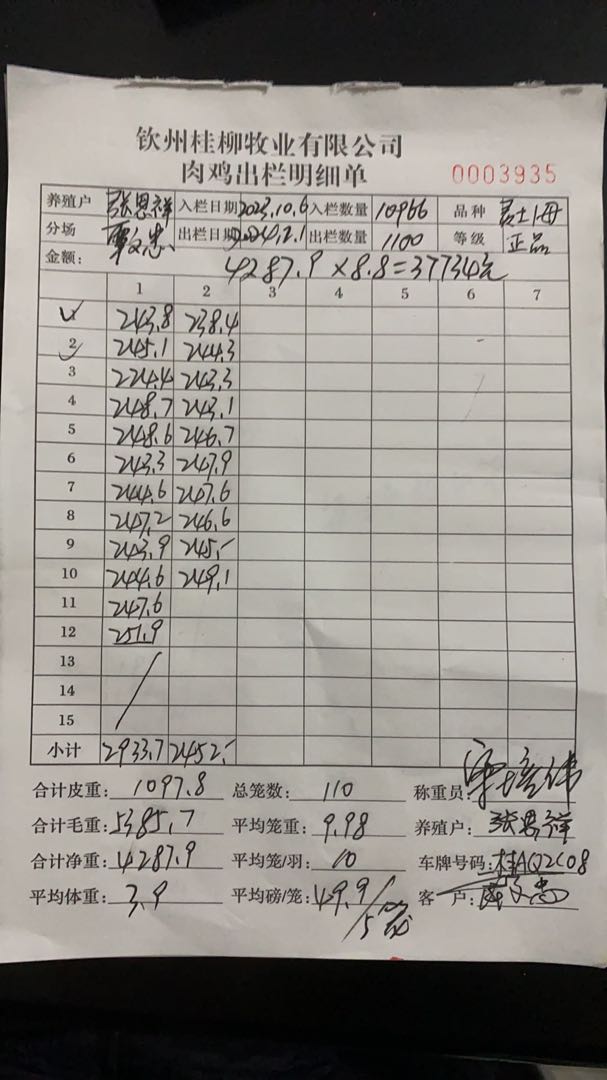 钦州桂柳牧业有限公司
肉鸡出栏明细单 0003935
养殖户 张恩祥 入栏日期 2023.10.6 入栏数量 10966 品种 土1母
分场 覃文忠 出栏日期 2024.2.1 出栏数量 1100 等级 正品
金额: 4287.9×8.8=37734元
1 2 3 4 5 6 7
1 243.8 238.4
2 245.1 244.3
3 224.4 243.3
4 248.7 243.1
5 248.6 246.7
6 243.3 247.9
7 244.6 247.6
8 247.2 246.6
9 243.9 245.-
10 244.6 249.1
11 247.6
12 251.9
13
14
15
小计 2933.7 2452.-
合计皮重: 1097.8 总笼数: 110 称重员:
合计毛重: 5385.7 平均笼重: 9.98 养殖户: 张恩祥
合计净重: 4287.9 平均笼/羽: 10 车牌号码: 桂AQ2C08
平均体重: 3.9 平均磅/笼: 49.9/5笼 客户: